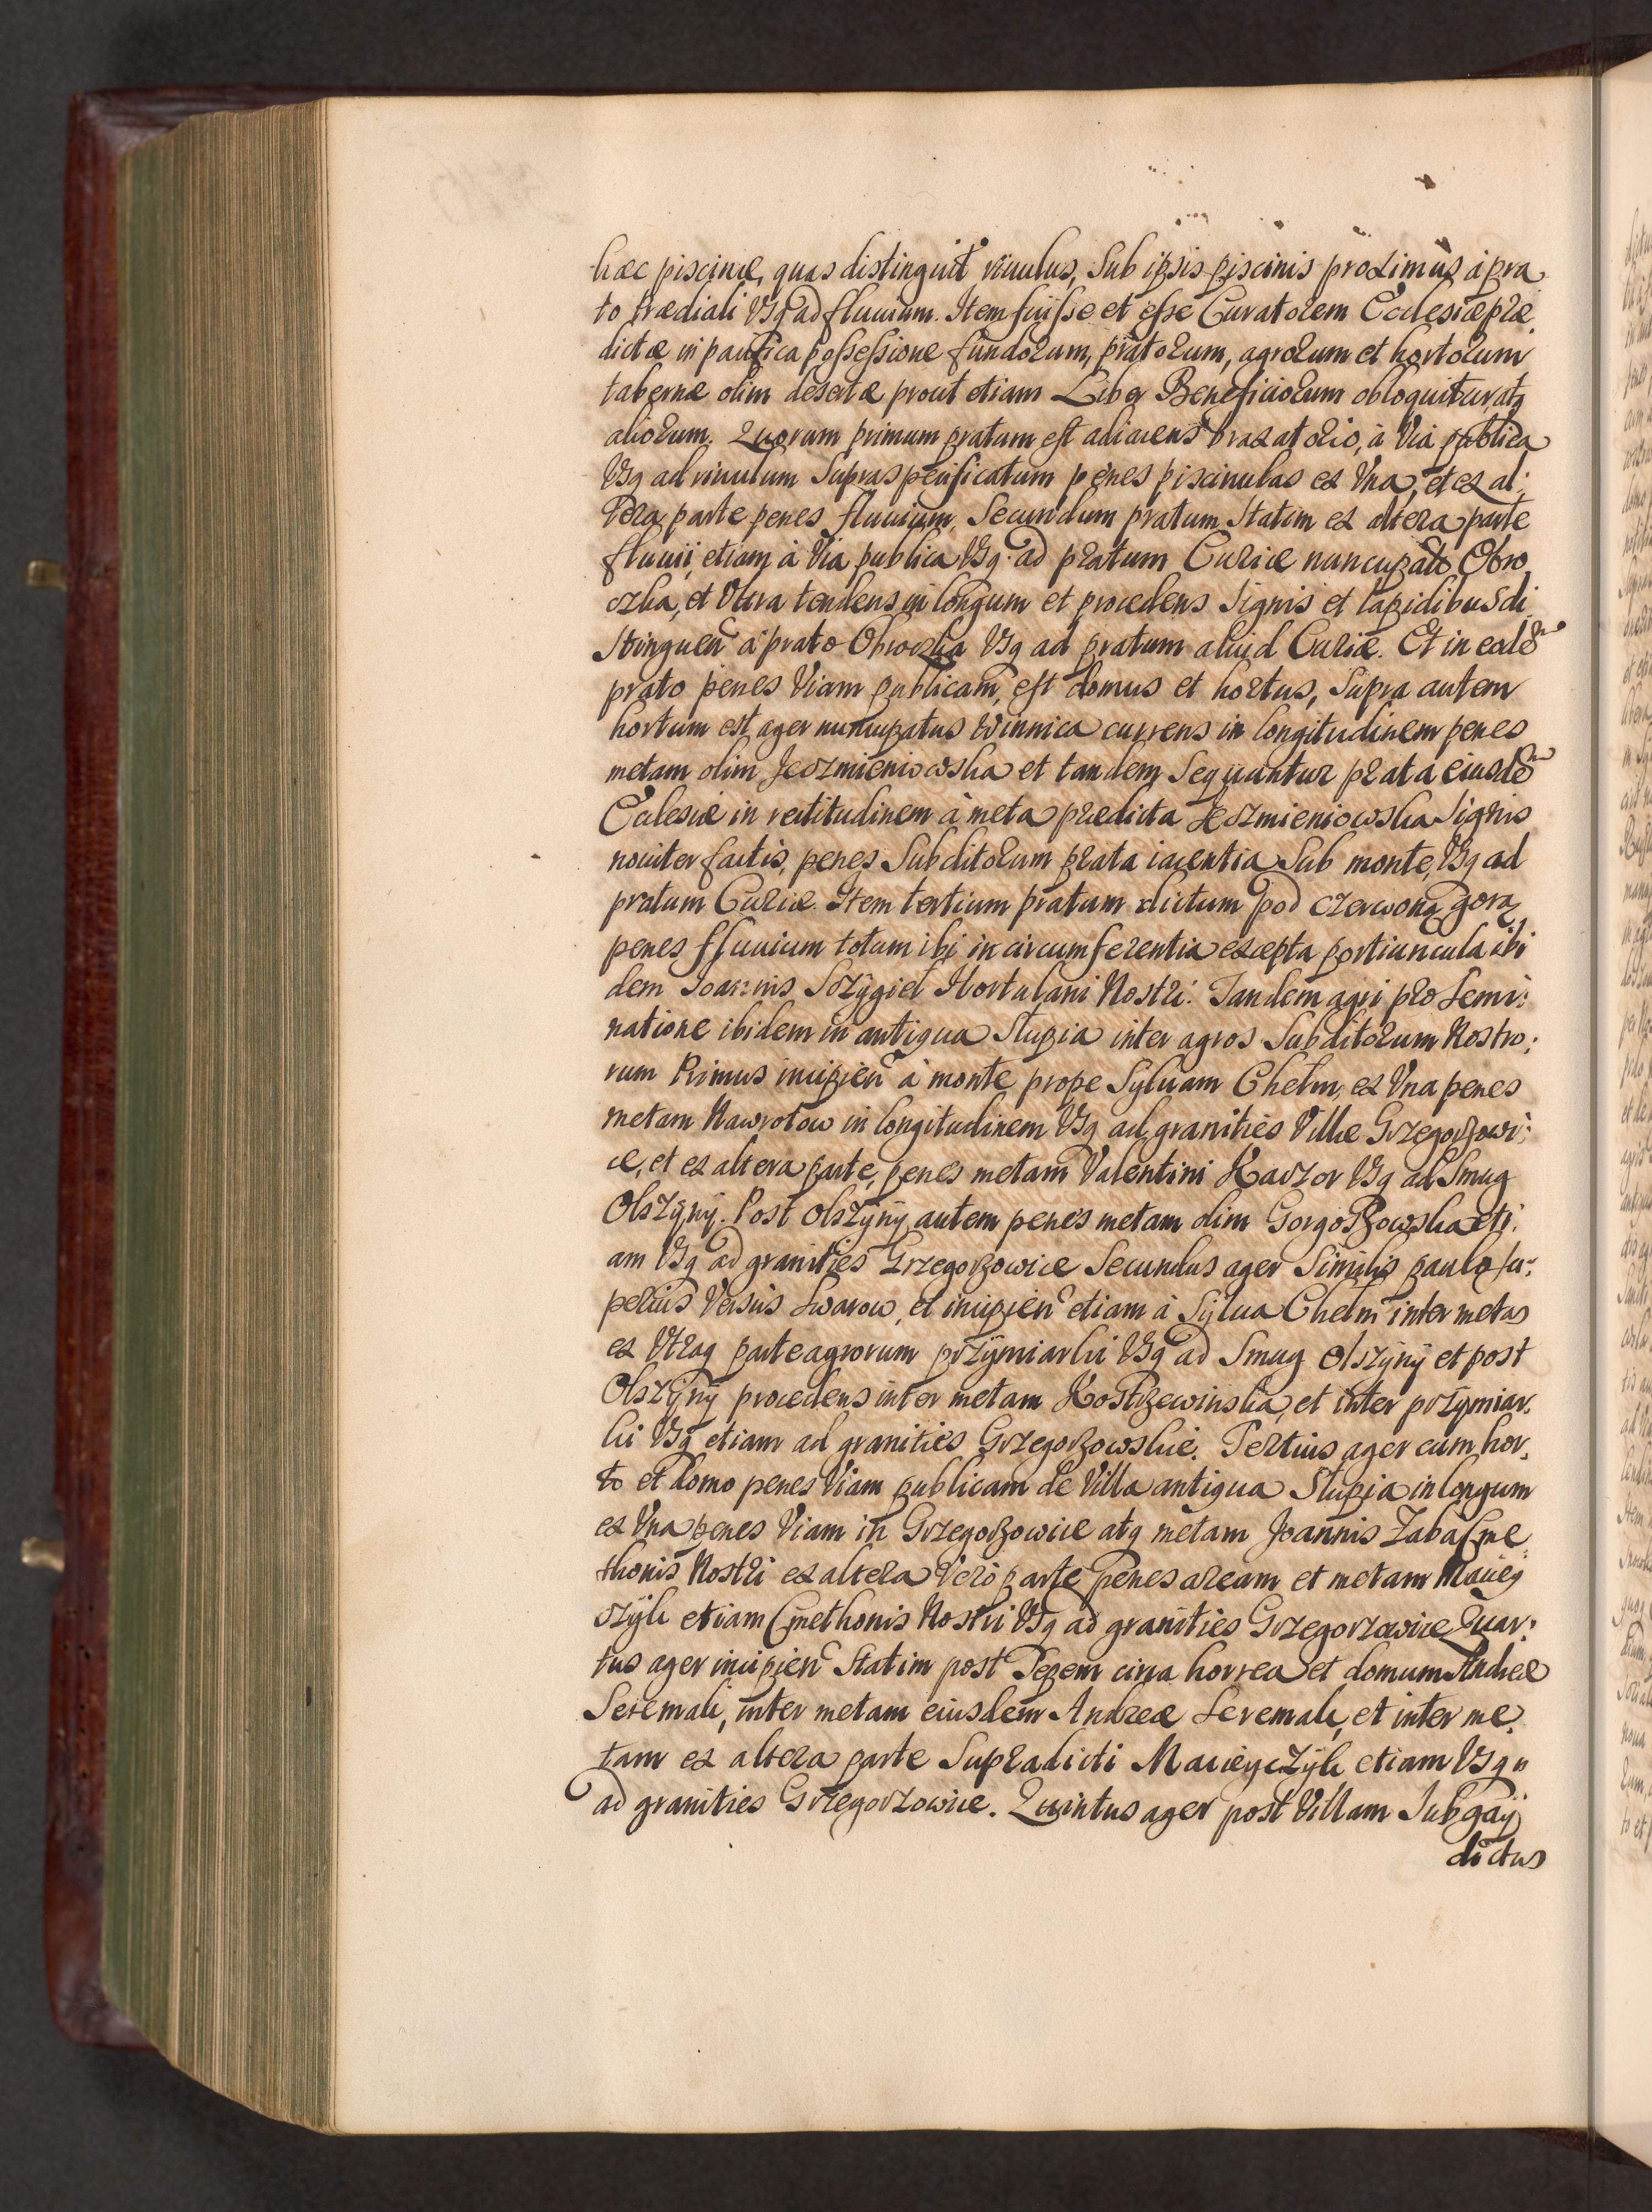 hæc piscinæ, quas distinguit riuulus, Sub ipsis piscinis proximus à pra
to prædiali Vsq ad fluuium. Item fuisse et esse Curatorem Ecclesiæ præ
dictæ in paufica possessione fundorum, pratorum, agrorum et hortorum
tabernæ olim desertæ prout etiam Liber Beneficiorum obloquitur atq
aliorum. Quorum primum pratum est adiacens braxatorio, à Via publica
Vsq ad riuulum Supraspecificatum penes piscinulas ex Vna, et ex al:
tera parte penes fluuium. Secundum pratum Statim ex altera parte
fluuii, etiam à Via publica Vsq ad pratum Curiæ nuncupato Obro
czka, et Vltra tendens in longum et procedens Signis et lapidibus di
stinguen à prato Obroczka Vsq ad pratum aliud Curiæ. Et in eadem
prato penes Viam publicam, est domus et hortus, Supra autem
hortum est ager nuncupatus Winnica currens in longitudinem penes
metam olim Jeczmieniowska et tandem Sequuntur prata eiusdem
Ecclesiæ in rectitudinem à meta prædicta Jeczmieniowska Signis
nouiter factis, penes Subditorum prata iacentia Sub monte, Vsq ad
pratum Curiæ. Item tertium pratum dictum pod czerwoną gorą
penes fluuium totum ibi in circumferentia excepta portiuncula ibi
dem Joannis Sczygieł Hortulani Nostri. Tandem agri pro Semi:
natione ibidem in antiqua Słupia inter agros Subditorum Nostro:
rum Primus incipien à monte prope Syluam Chełm, ex Vna penes
metam Nawrotow in longitudinem Vsq ad granities Villæ Grzegorzowi:
ce, et ex altera parte, penes metam Valentini Kaczor Vsq ad Smug
Olszyny. Post Olszyny autem penes metam olim Gorgorzowska eti:
am Vsq ad granities Grzegorzowice Secundus ager Similis paulo su:
perius Versus Swarow, et incipien etiam à Sylua Chełm inter metas
ex Vtraq parte agrorum przymiarki Vsq ad Smug Olszyny et post
Olszyny procedens inter metam Kostrzewinska, et inter przymiar:
ki Vsq etiam ad granities Grzegorzowskie. Tertius ager cum hor:
to et domo penes Viam publicam de Villa antiqua Słupia in longum
ex Vna penes Viam in Grzegorzowice atq metam Joannis Zaba Cme:
thonis Nostri ex altera Verò parte penes aream et metam Maciey
czyk etiam Cmethonis Nostri Vsq ad granities Grzegorzowice Quar:
tus ager incipien Statim post Tepem circa horrea et domum Andreæ
Seremak, inter metam eiusdem Andreæ Seremak, et inter me:
tam ex altera parte Supradicti Macieyczyk etiam Vsq
ad granities Grzegorzowice. Quintus ager post Villam Subgaÿ
dictus